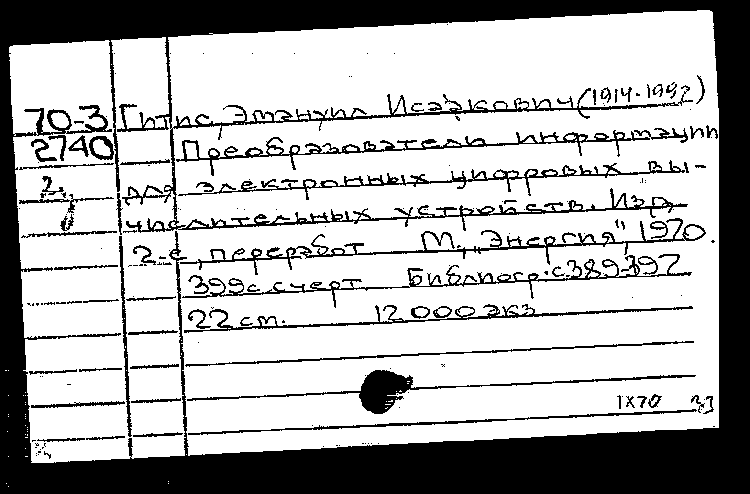 70-3 Гитис, Эммануил Исаакович (1914-1992)
2740 Преобразователи информации
2. для электронных цифровых вы-
числительных устройств. Изд.
2-е, переработ М., „Энергия", 1970.
399с. с черт. Библиогр: с389-397
22 см. 12 000 экз
IX70 33